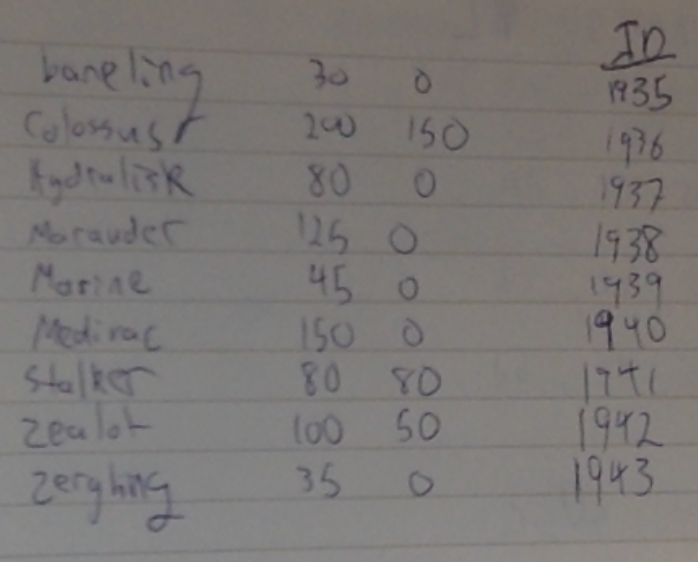 ID
baneling 30 0 1935
Colossus 200 150 1936
Hydralisk 80 0 1937
Marauder 125 0 1938
Marine 45 0 1939
Medivac 150 0 1940
Stalker 80 80 1941
zealot 100 50 1942
zergling 35 0 1943